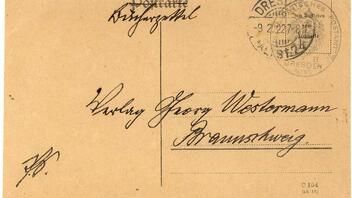 Postkarte
Bücherzettel
DRESDEN
-9.2.22 7-8
ALTST. 24
DRESDEN
Verlag Georg Westermann
Braunschweig.
C 154